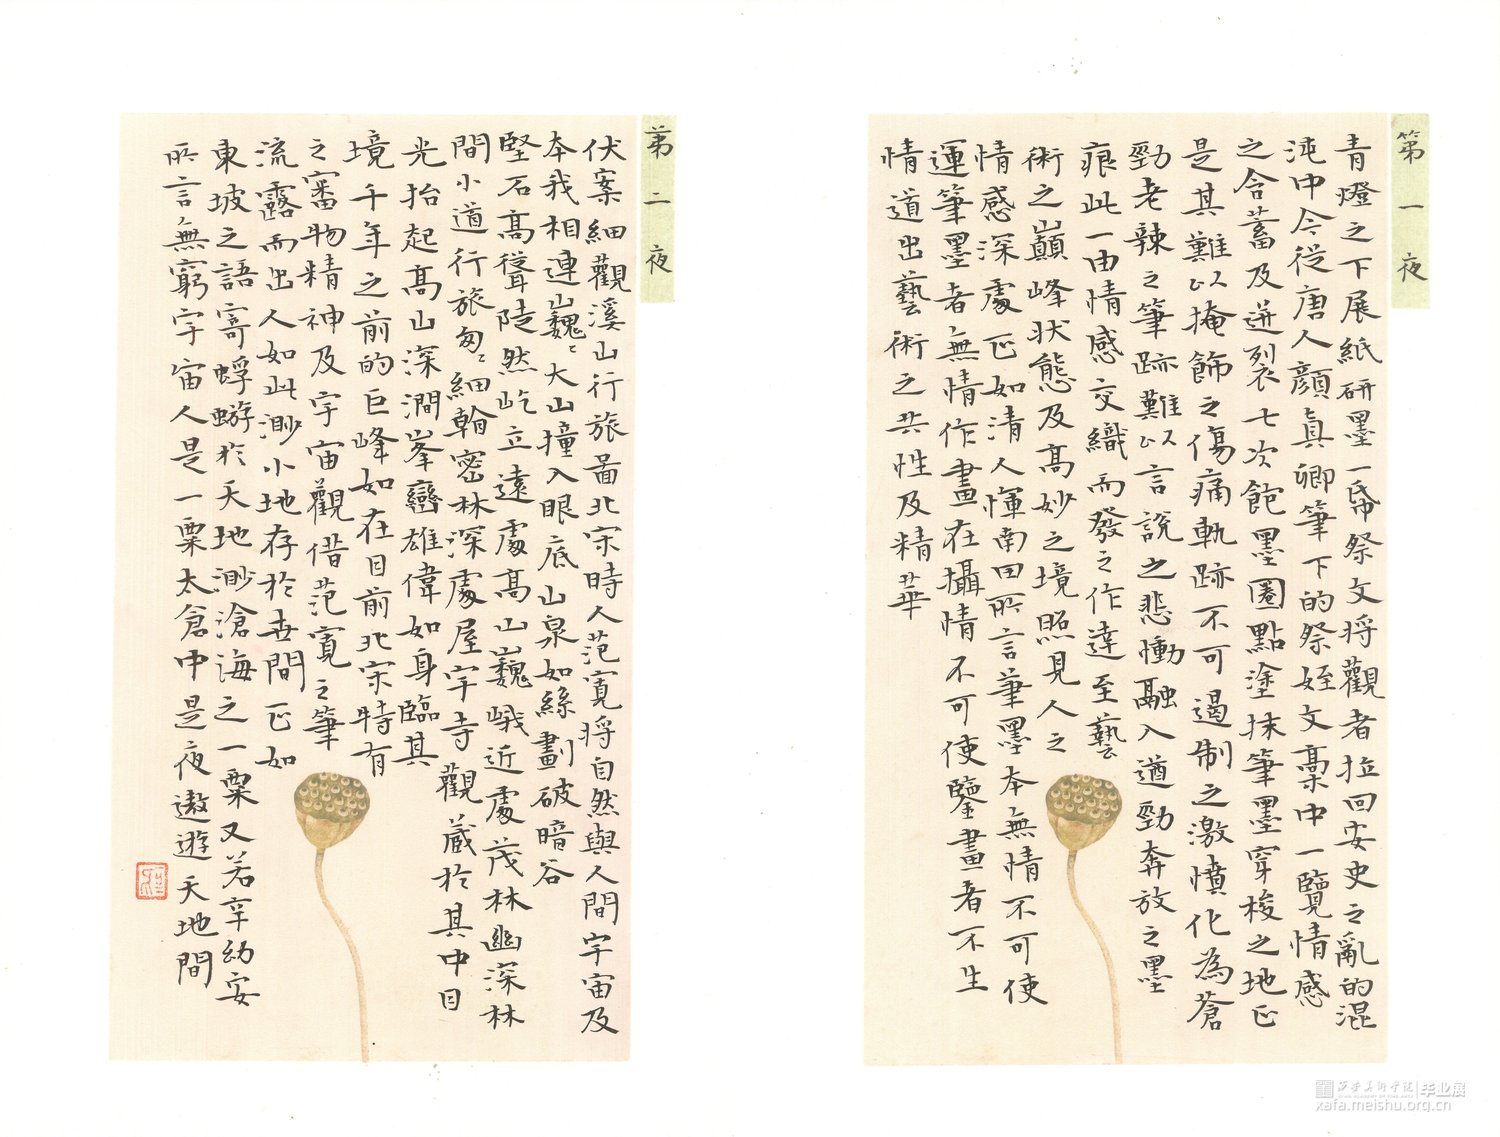 第一夜
青燈之下展紙研墨一帋祭文將觀者拉回安史之亂的混
沌中今從唐人顔真卿筆下的祭姪文稾中一覽情感
之含蓄及迸裂七次飽墨圈點塗抹筆墨穿梭之地正
是其難以掩飾之傷痛軌跡不可遏制之激憤化為蒼
勁老辣之筆跡難以言說之悲慟融入遒勁奔放之墨
痕此一由情感交織而發之作達至藝
術之巔峰狀態及高妙之境照見人之
情感深處正如清人惲南田所言筆墨本無情不可使
運筆墨者無情作畫在攝情不可使鑒畫者不生
情道出藝術之共性及精華
第二夜
伏案細觀溪山行旅圖北宋時人范寬將自然與人間宇宙及
本我相連巍巍大山撞入眼底山泉如絲劃破暗谷
堅石高聳陡然屹立遠處高山巍峨近處茂林幽深林
間小道行旅匆匆細翰密林深處屋宇寺觀藏於其中目
光抬起高山深澗峯巒雄偉如身臨其
境千年之前的巨峰如在目前北宋特有
之審物精神及宇宙觀借范寬之筆
流露而出人如此渺小地存於世間正如
東坡之語寄蜉蝣於天地渺滄海之一粟又若辛幼安
所言無窮宇宙人是一粟太倉中是夜遨遊天地間
西安美術學院
XI'AN ACADEMY OF FINE ARTS
毕业展
xafa.meishu.org.cn